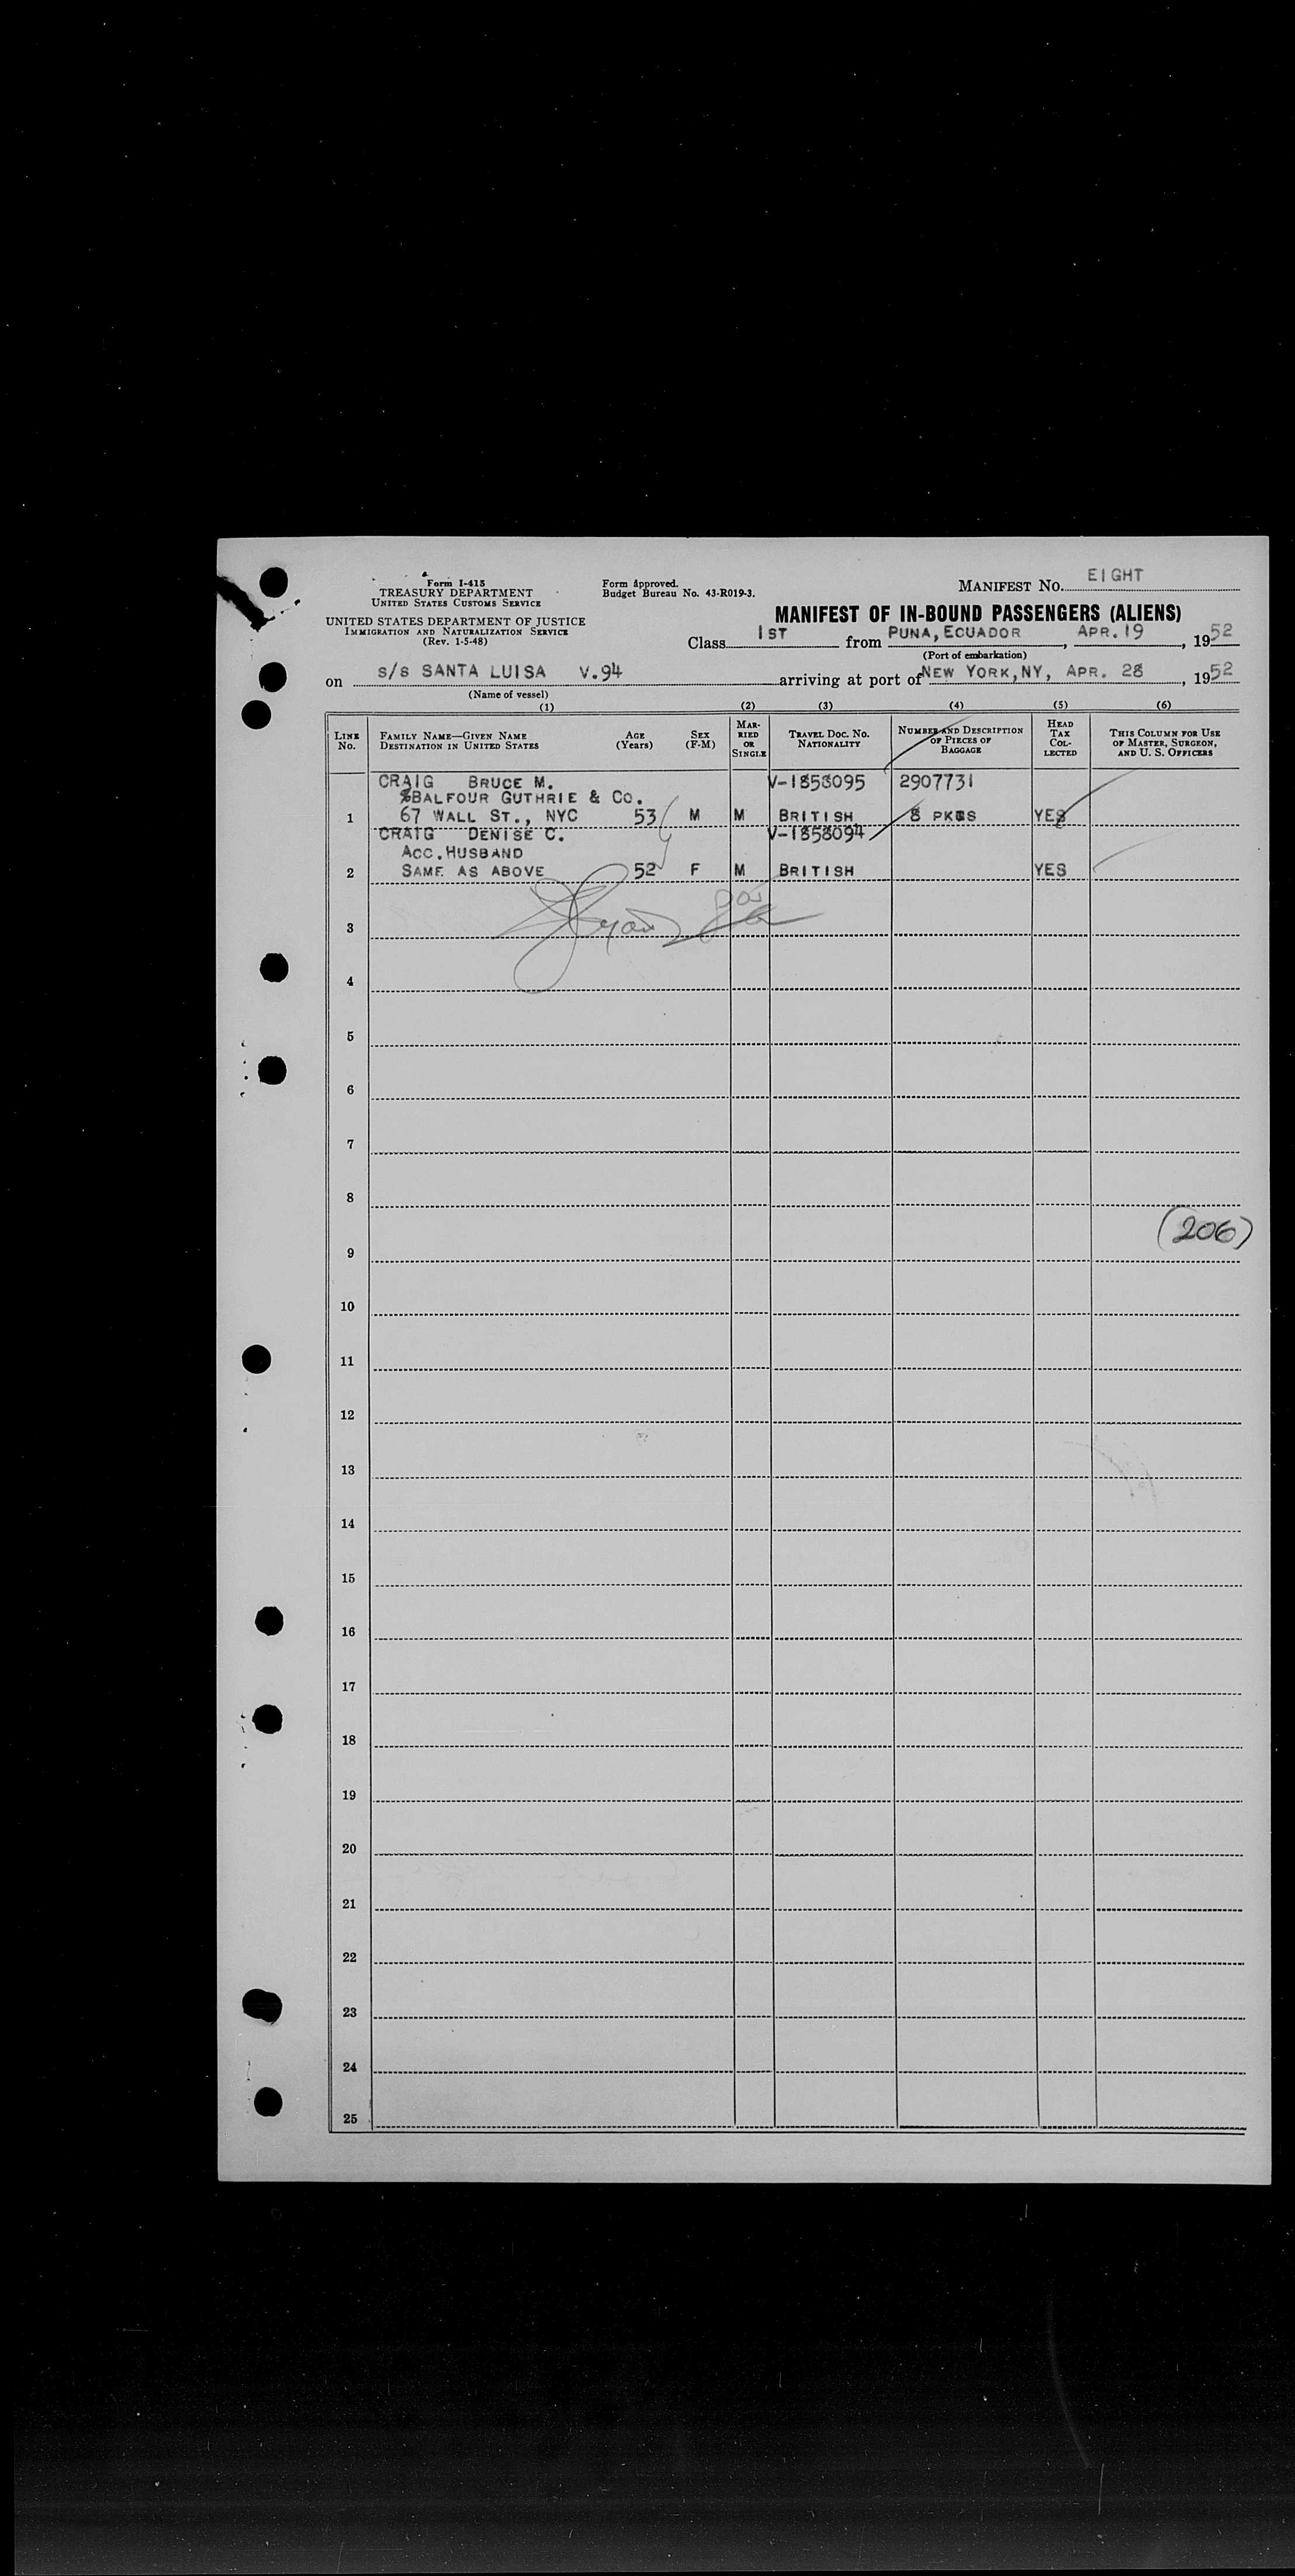 Form I-415
TREASURY DEPARTMENT
UNITED STATES CUSTOMS SERVICE
UNITED STATES DEPARTMENT OF JUSTICE
IMMIGRATION AND NATURALIZATION SERVICE
(Rev. 1-5-48)
Form Approved.
Budget Bureau No. 43-R019-3.
MANIFEST NO. EIGHT
MANIFEST OF IN-BOUND PASSENGERS (ALIENS)
Class 1ST from PUNA, ECUADOR, APR. 19, 1952
(Port of embarkation)
on S/S SANTA LUISA V.94 arriving at port of NEW YORK, NY, APR. 28, 1952
(Name of vessel)
(1) (2) (3) (4) (5) (6)
LINE NO. FAMILY NAME—GIVEN NAME DESTINATION IN UNITED STATES AGE (YEARS) SEX (F-M) MARRIED OR SINGLE TRAVEL DOC. NO. NATIONALITY NUMBER AND DESCRIPTION OF PIECES OF BAGGAGE HEAD TAX COLLECTED THIS COLUMN FOR USE OF MASTER, SURGEON, AND U. S. OFFICERS
CRAIG BRUCE M. V-1858095 2907731
%BALFOUR GUTHRIE & CO.
1 67 WALL ST., NYC 53 M M BRITISH 8 PKGS YES
CRAIG DENISE C. V-1858094
ACC. HUSBAND
2 SAME AS ABOVE 52 F M BRITISH YES
3
4
5
6
7
8
(206)
9
10
11
12
13
14
15
16
17
18
19
20
21
22
23
24
25